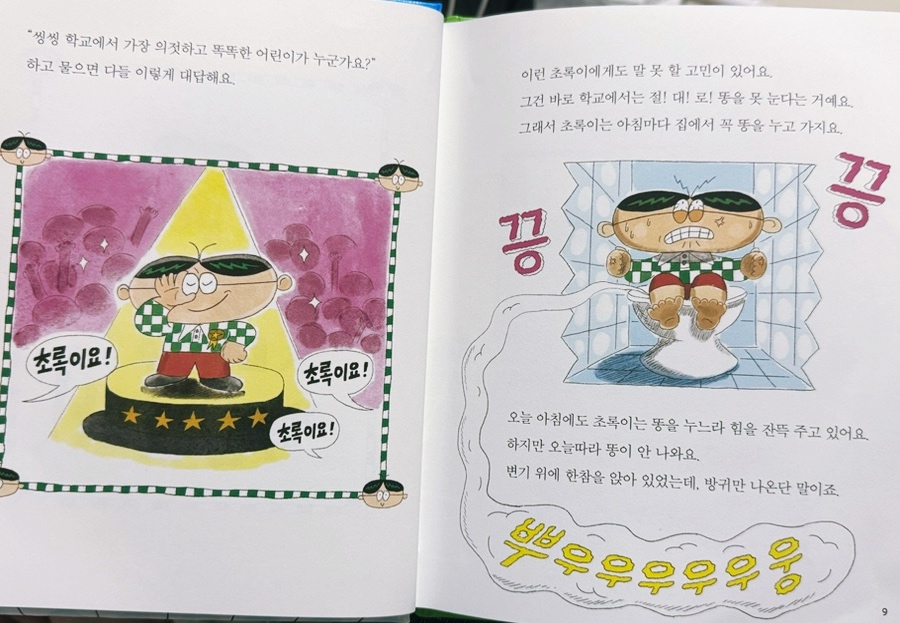 "씽씽 학교에서 가장 의젓하고 똑똑한 어린이가 누군가요?"
하고 물으면 다들 이렇게 대답해요.
초록이요!
초록이요!
초록이요!
이런 초록이에게도 말 못 할 고민이 있어요.
그건 바로 학교에서는 절! 대! 로! 똥을 못 눈다는 거예요.
그래서 초록이는 아침마다 집에서 꼭 똥을 누고 가지요.
끙
끙
오늘 아침에도 초록이는 똥을 누느라 힘을 잔뜩 주고 있어요.
하지만 오늘따라 똥이 안 나와요.
변기 위에 한참을 앉아 있었는데, 방귀만 나온단 말이죠.
뿌우우우우우웅
9